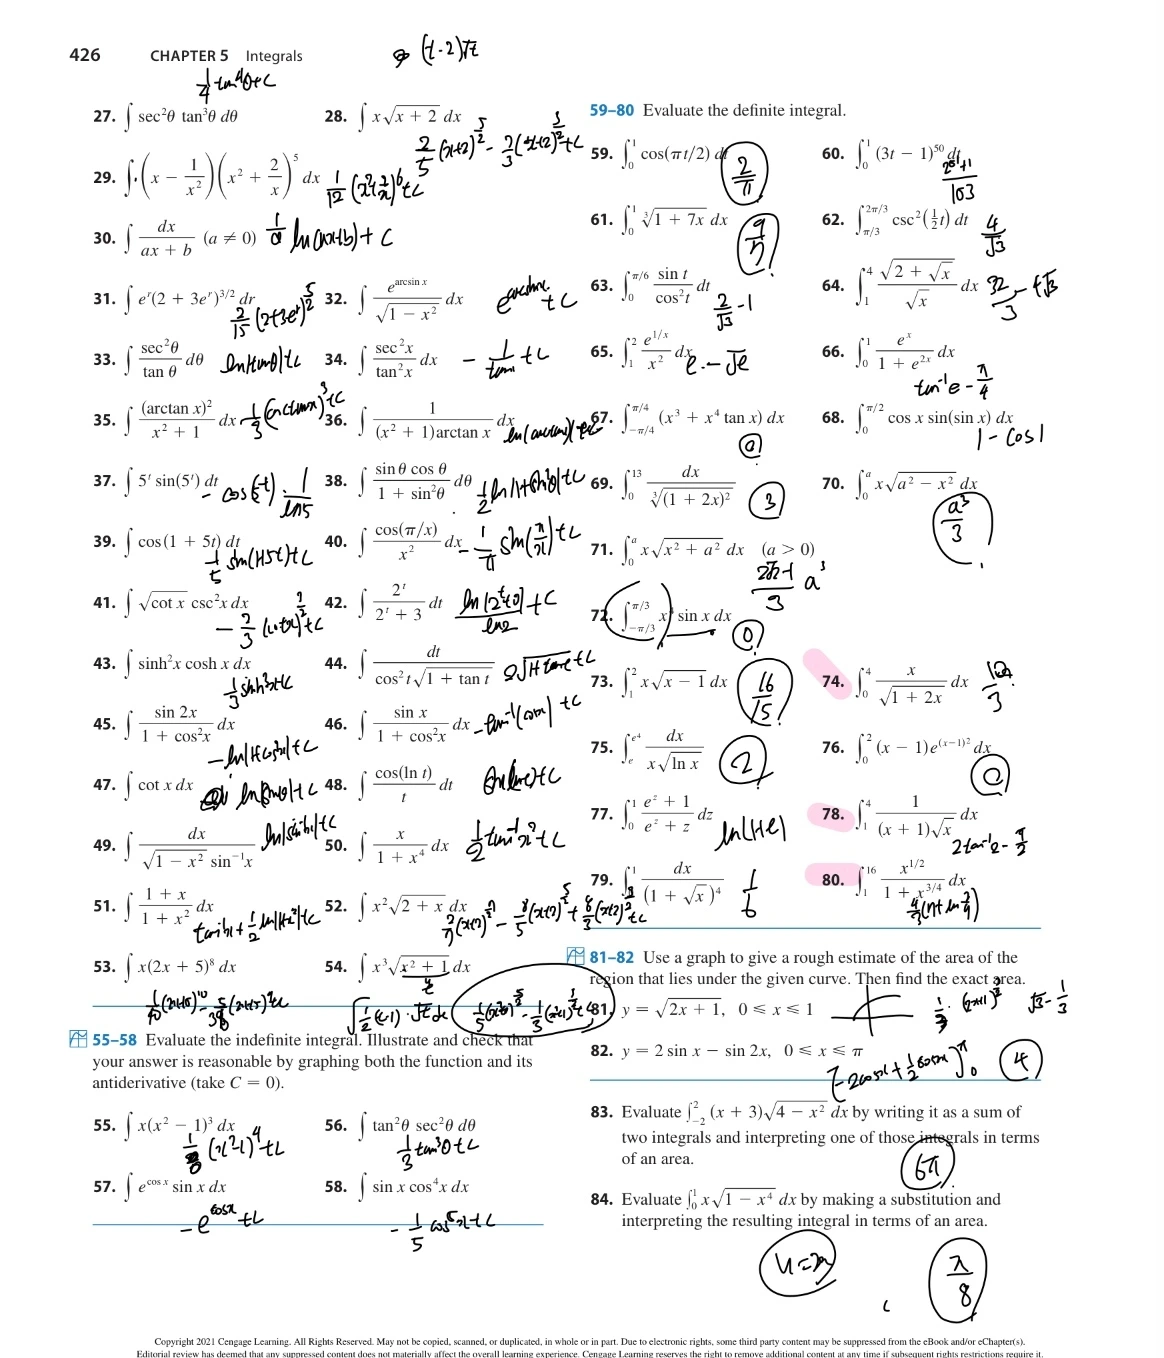 426 CHAPTER 5 Integrals
(t-2)√t
1/4 tan⁴θ+C
27. ∫ sec²θ tan³θ dθ
28. ∫ x√(x + 2) dx
2/5 (x+2)^(5/2) - 2/3 (x+2)^(3/2) + C
29. ∫ (x − 1/x²)(x² + 2/x)⁵ dx
1/12 (x²+2/x)⁶+C
30. ∫ dx/(ax + b) (a ≠ 0)
1/a ln(ax+b) + C
31. ∫ eʳ(2 + 3eʳ)^(3/2) dr
2/15 (2+3eʳ)^(5/2)
32. ∫ e^(arcsin x)/√(1 − x²) dx
33. ∫ sec²θ/tan θ dθ
ln|tanθ|+C
34. ∫ sec²x/tan²x dx
- 1/tanx + C
35. ∫ (arctan x)²/(x² + 1) dx
1/3 (arctanx)³+C
36. ∫ 1/((x² + 1)arctan x) dx
37. ∫ 5ᵗ sin(5ᵗ) dt
- cos(5ᵗ) · 1/ln5
38. ∫ sin θ cos θ/(1 + sin²θ) dθ
1/2 ln|1+sin²θ|+C
39. ∫ cos(1 + 5t) dt
1/5 sin(1+5t)+C
40. ∫ cos(π/x)/x² dx
- 1/π sin(π/x)+C
41. ∫ √(cot x) csc²x dx
- 2/3 (cotx)^(3/2)+C
42. ∫ 2ᵗ/(2ᵗ + 3) dt
43. ∫ sinh²x cosh x dx
1/3 sinh³x+C
44. ∫ dt/(cos²t√(1 + tan t))
2√(1+tant)+C
45. ∫ sin 2x/(1 + cos²x) dx
-ln|1+cos²x|+C
46. ∫ sin x/(1 + cos²x) dx
-tan⁻¹(cosx) +C
47. ∫ cot x dx
ln|sinx|+C
48. ∫ cos(ln t)/t dt
49. ∫ dx/(√(1 − x²) sin⁻¹x)
ln|sin⁻¹x|+C
50. ∫ x/(1 + x⁴) dx
1/2 tan⁻¹x²+C
51. ∫ (1 + x)/(1 + x²) dx
tan⁻¹x + 1/2 ln|1+x²|+C
52. ∫ x²√(2 + x) dx
2/7 (x+2)^(7/2) - 8/5 (x+2)^(5/2) + 8/3 (x+2)^(3/2) +C
53. ∫ x(2x + 5)⁸ dx
54. ∫ x³√(x² + 1) dx
∫ 1/2 (t-1) · √t dt
1/5 (x²+1)^(5/2) - 1/3 (x²+1)^(3/2) +C
55–58 Evaluate the indefinite integral. Illustrate and check that
your answer is reasonable by graphing both the function and its
antiderivative (take C = 0).
55. ∫ x(x² − 1)³ dx
1/8 (x²-1)⁴+C
56. ∫ tan²θ sec²θ dθ
1/3 tan³θ+C
57. ∫ e^(cos x) sin x dx
-e^(cosx) +C
58. ∫ sin x cos⁴x dx
- 1/5 cos⁵x+C
59–80 Evaluate the definite integral.
59. ∫₀¹ cos(πt/2) dt
2/π
60. ∫₀¹ (3t − 1)⁵⁰ dt
61. ∫₀¹ ∛(1 + 7x) dx
62. ∫_(π/3)^(2π/3) csc²(½t) dt
4/√3
63. ∫₀^(π/6) sin t/cos²t dt
2/√3 -1
64. ∫₁⁴ √(2 + √x)/√x dx
32/3 - 4√3
65. ∫₁² e^(1/x)/x² dx
e-√e
66. ∫₀¹ eˣ/(1 + e²ˣ) dx
tan⁻¹e - π/4
67. ∫_(−π/4)^(π/4) (x³ + x⁴ tan x) dx
0
68. ∫₀^(π/2) cos x sin(sin x) dx
1-cos1
69. ∫₀¹³ dx/∛((1 + 2x)²)
3
70. ∫₀ᵃ x√(a² − x²) dx
a³/3
71. ∫₀ᵃ x√(x² + a²) dx (a > 0)
(2√2-1)/3 a³
72. ∫_(−π/3)^(π/3) x⁴ sin x dx
0
73. ∫₁² x√(x − 1) dx
16/15
74. ∫₀⁴ x/√(1 + 2x) dx
10/3
75. ∫ₑ^(e⁴) dx/(x√(ln x))
2
76. ∫₀² (x − 1)e^((x−1)²) dx
0
77. ∫₀¹ (eᶻ + 1)/(eᶻ + z) dz
ln(1+e)
78. ∫₁⁴ 1/((x + 1)√x) dx
2tan⁻¹2 - π/2
79. ∫₀¹ dx/(1 + √x)⁴
1/6
80. ∫₁¹⁶ x^(1/2)/(1 + x^(3/4)) dx
81–82 Use a graph to give a rough estimate of the area of the
region that lies under the given curve. Then find the exact area.
81. y = √(2x + 1), 0 ≤ x ≤ 1
1/3 · (2x+1)^(3/2) √3 - 1/3
82. y = 2 sin x − sin 2x, 0 ≤ x ≤ π
[-2cosx + 1/2 cos2x]₀^π 4
83. Evaluate ∫₋₂² (x + 3)√(4 − x²) dx by writing it as a sum of
two integrals and interpreting one of those integrals in terms
of an area.
6π
84. Evaluate ∫₀¹ x√(1 − x⁴) dx by making a substitution and
interpreting the resulting integral in terms of an area.
u=x²
π/8
Copyright 2021 Cengage Learning. All Rights Reserved. May not be copied, scanned, or duplicated, in whole or in part. Due to electronic rights, some third party content may be suppressed from the eBook and/or eChapter(s).
Editorial review has deemed that any suppressed content does not materially affect the overall learning experience. Cengage Learning reserves the right to remove additional content at any time if subsequent rights restrictions require it.